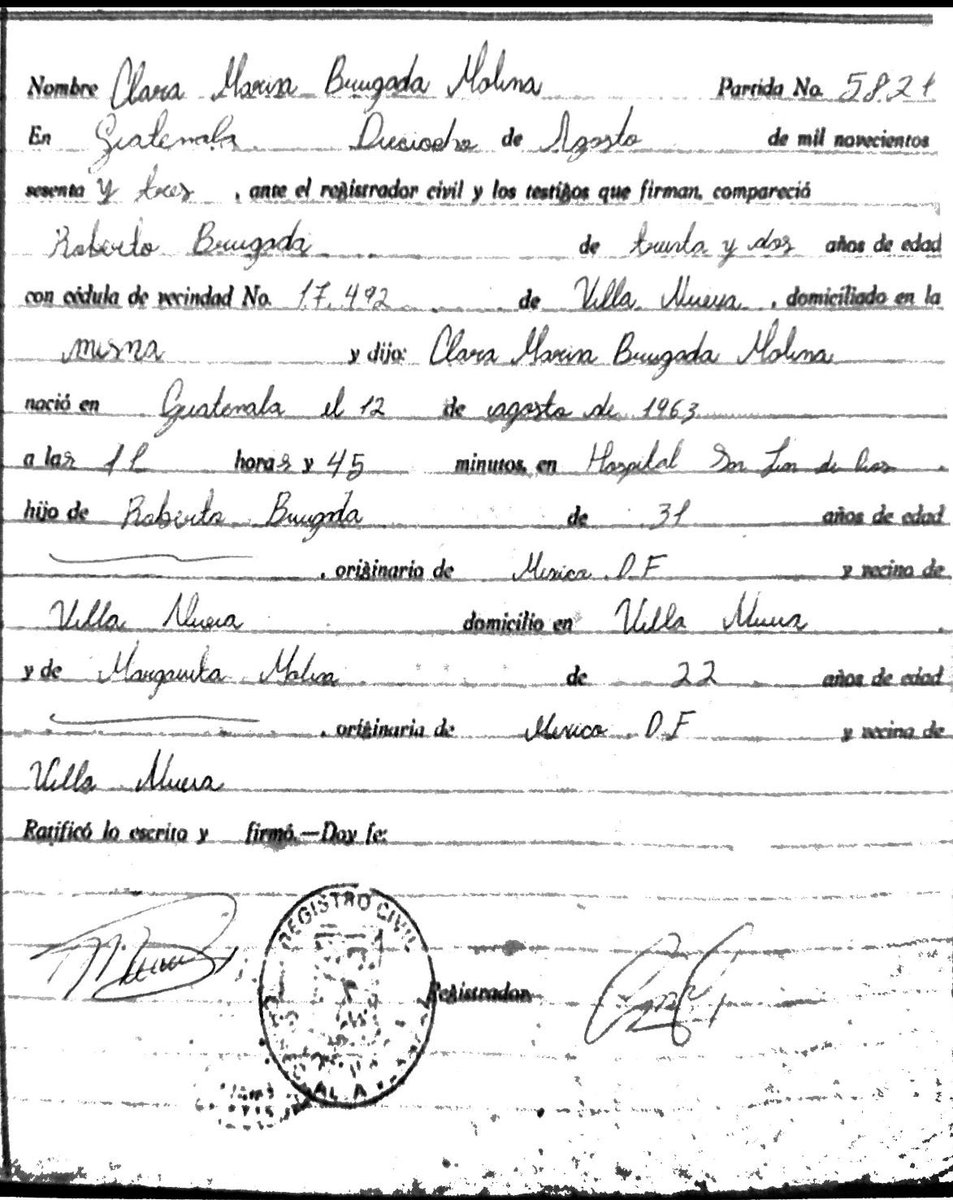 Nombre Clara Marina Brugada Molina Partida No. 5821
En Guatemala Dieciocho de Agosto de mil novecientos
sesenta y tres, ante el registrador civil y los testigos que firman, compareció
Roberto Brugada de treinta y dos años de edad
con cédula de vecindad No. 17.492 de Villa Nueva, domiciliado en la
misma y dijo: Clara Marina Brugada Molina
nació en Guatemala el 12 de agosto de 1963
a las horas y 45 minutos, en Hospital de
hijo de Roberto Brugada de 31 años de edad
, originario de Mexico D F y vecino de
Villa Nueva domicilio en Villa Nueva
y de Margarita Molina de 22 años de edad
, originaria de Mexico D F y vecina de
Villa Nueva
Ratificó lo escrito y firmó.—Doy fe:
REGISTRO CIVIL
Registrador